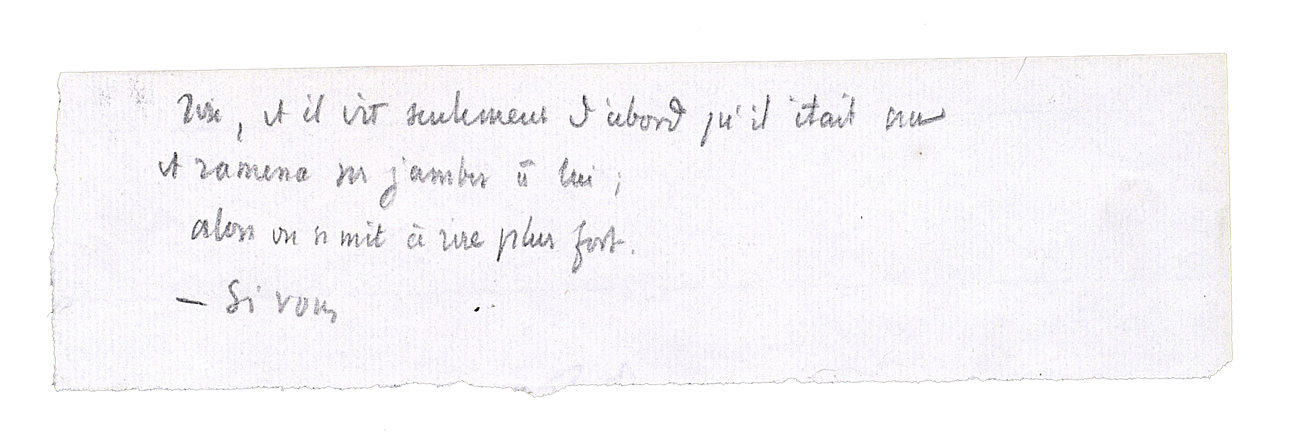 rire, et il vit seulement d'abord qu'il était nu
et ramena ses jambes à lui ;
alors on se mit à rire plus fort.
— Si vous